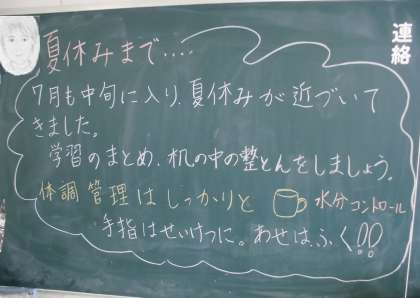 連絡
夏休みまで....
7月も中旬に入り、夏休みが近づいて
きました。
学習のまとめ、机の中の整とんをしましょう。
体調管理はしっかりと 水分コントロール
手指はせいけつに。あせは、ふく!!